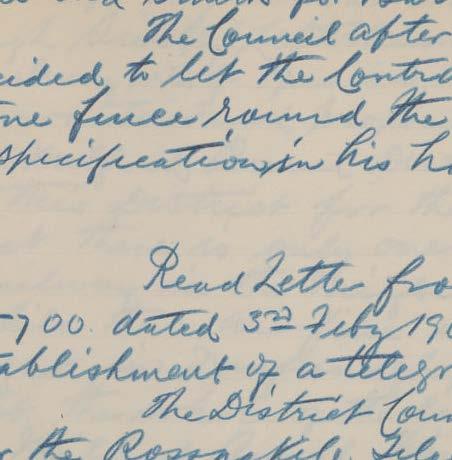 The Council after
cided to let the Contra
ne fence round the
specification in his h
Read Letter fro
700. dated 3rd Feby 190
tablishment of a telegr
The District Coun
the Rossnakill Tele